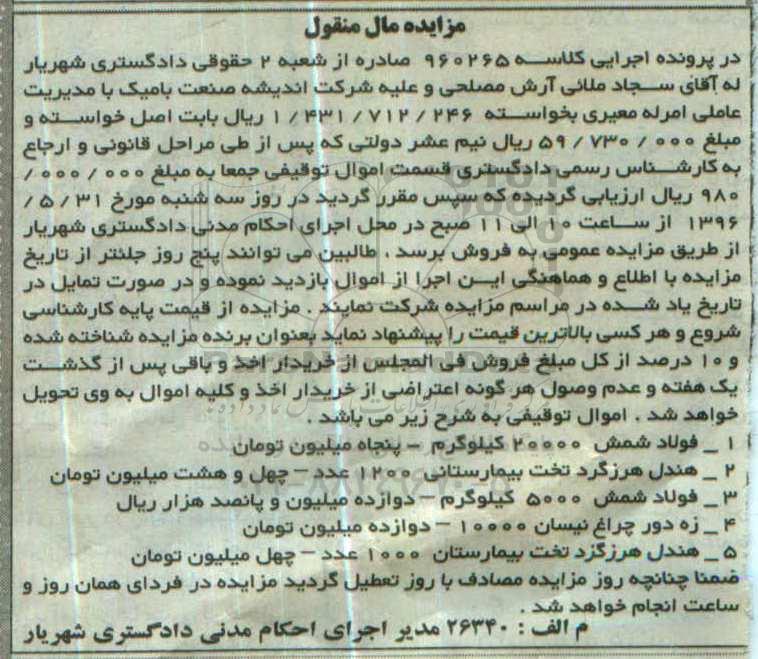 مزایده مال منقول
در پرونده اجرایی کلاسه ۹۶۰۲۶۵ صادره از شعبه ۲ حقوقی دادگستری شهریار
له آقای سجاد ملائی آرش مصلحی و علیه شرکت اندیشه صنعت بامیک با مدیریت
عاملی امرله معیری بخواسته ۱/۴۳۱/۷۱۲/۲۴۶ ریال بابت اصل خواسته و
مبلغ ۵۹/۷۳۰/۰۰۰ ریال نیم عشر دولتی که پس از طی مراحل قانونی و ارجاع
به کارشناس رسمی دادگستری قسمت اموال توقیفی جمعا به مبلغ ۰۰۰/۰۰۰/
۹۸۰ ریال ارزیابی گردیده که سپس مقرر گردید در روز سه شنبه مورخ ۵/۳۱/
۱۳۹۶ از ساعت ۱۰ الی ۱۱ صبح در محل اجرای احکام مدنی دادگستری شهریار
از طریق مزایده عمومی به فروش برسد . طالبین می توانند پنج روز جلئتر از تاریخ
مزایده با اطلاع و هماهنگی این اجرا از اموال بازدید نموده و در صورت تمایل در
تاریخ یاد شده در مراسم مزایده شرکت نمایند . مزایده از قیمت پایه کارشناسی
شروع و هر کسی بالاترین قیمت را پیشنهاد نماید بعنوان برنده مزایده شناخته شده
و ۱۰ درصد از کل مبلغ فروش فی المجلس از خریدار اخذ و باقی پس از گذشت
یک هفته و عدم وصول هر گونه اعتراضی از خریدار اخذ و کلیه اموال به وی تحویل
خواهد شد . اموال توقیفی به شرح زیر می باشد .
۱ _ فولاد شمش ۲۰۰۰۰ کیلوگرم – پنجاه میلیون تومان
۲ _ هندل هرزگرد تخت بیمارستانی ۱۲۰۰ عدد – چهل و هشت میلیون تومان
۳ _ فولاد شمش ۵۰۰۰ کیلوگرم – دوازده میلیون و پانصد هزار ریال
۴ _ زه دور چراغ نیسان ۱۰۰۰۰ – دوازده میلیون تومان
۵ _ هندل هرزگزد تخت بیمارستان ۱۰۰۰ عدد – چهل میلیون تومان
ضمنا چنانچه روز مزایده مصادف با روز تعطیل گردید مزایده در فردای همان روز و
ساعت انجام خواهد شد .
م الف : ۲۶۳۴۰ مدیر اجرای احکام مدنی دادگستری شهریار